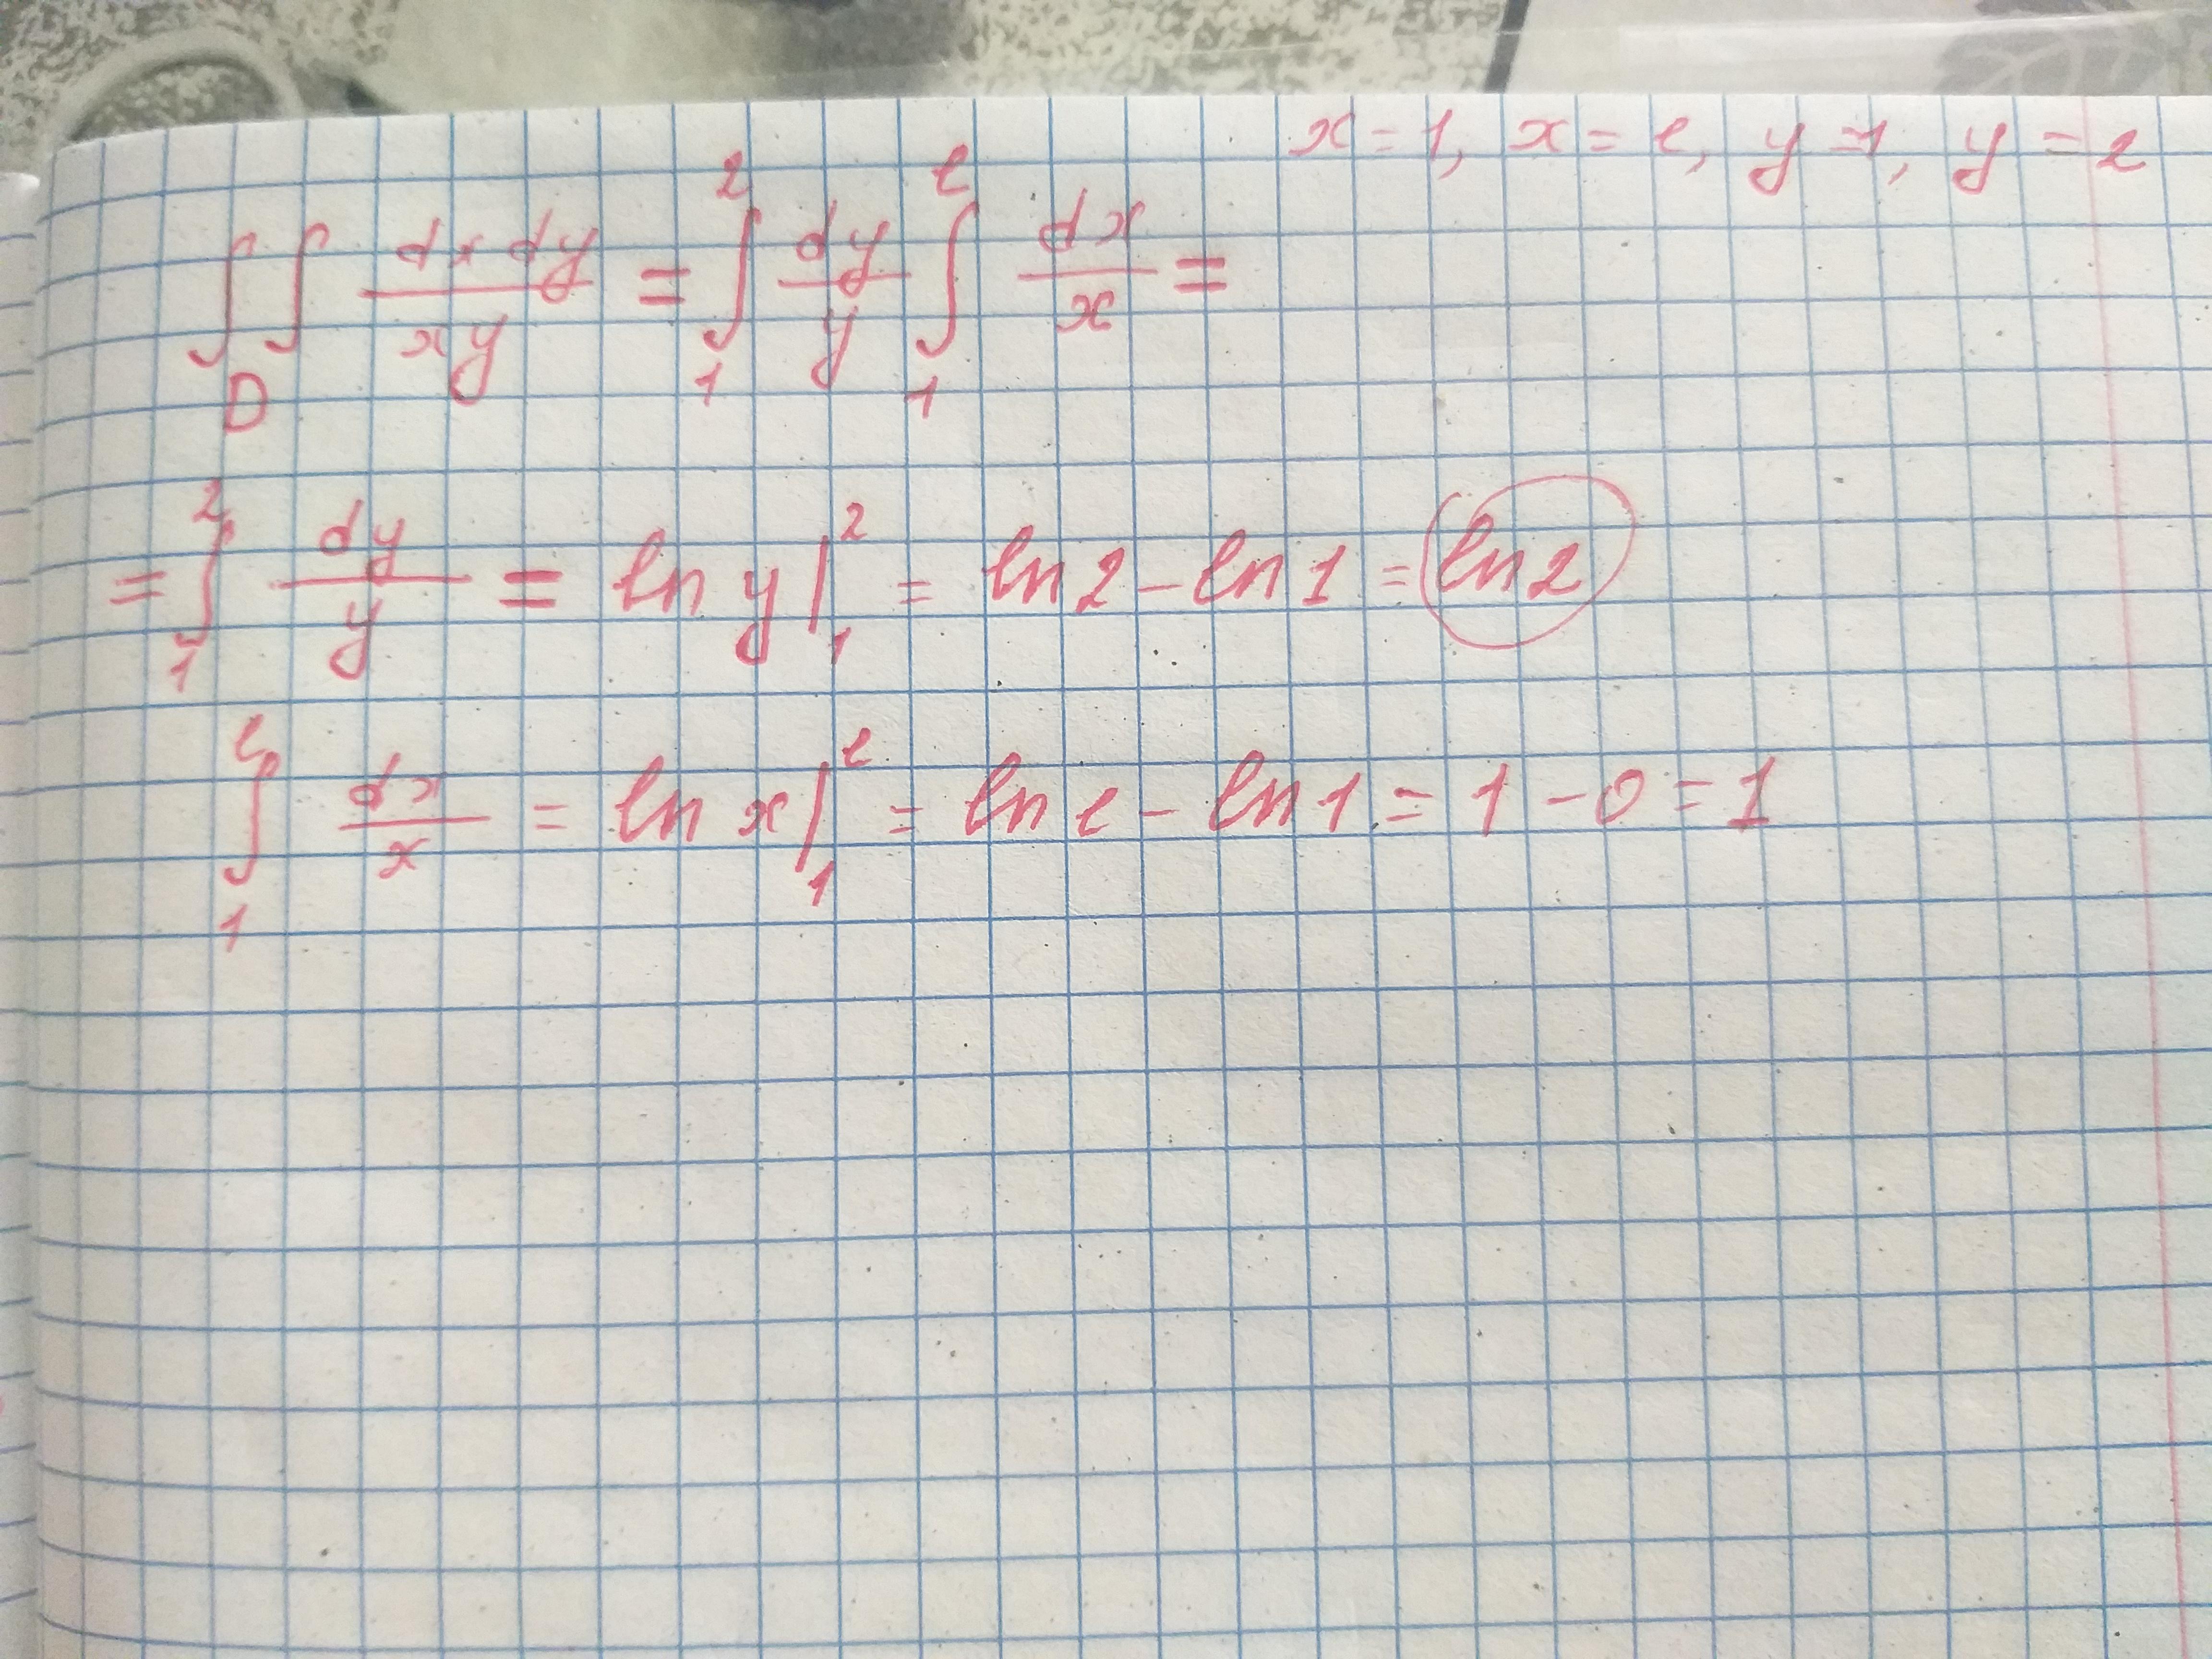 x = 1, x = e, y = 1, y = 2
∫∫_D dx dy / xy = ∫_1^2 dy/y ∫_1^e dx/x =
= ∫_1^2 dy/y = ln y |_1^2 = ln 2 - ln 1 = ln 2
∫_1^e dx/x = ln x |_1^e = ln e - ln 1 = 1 - 0 = 1